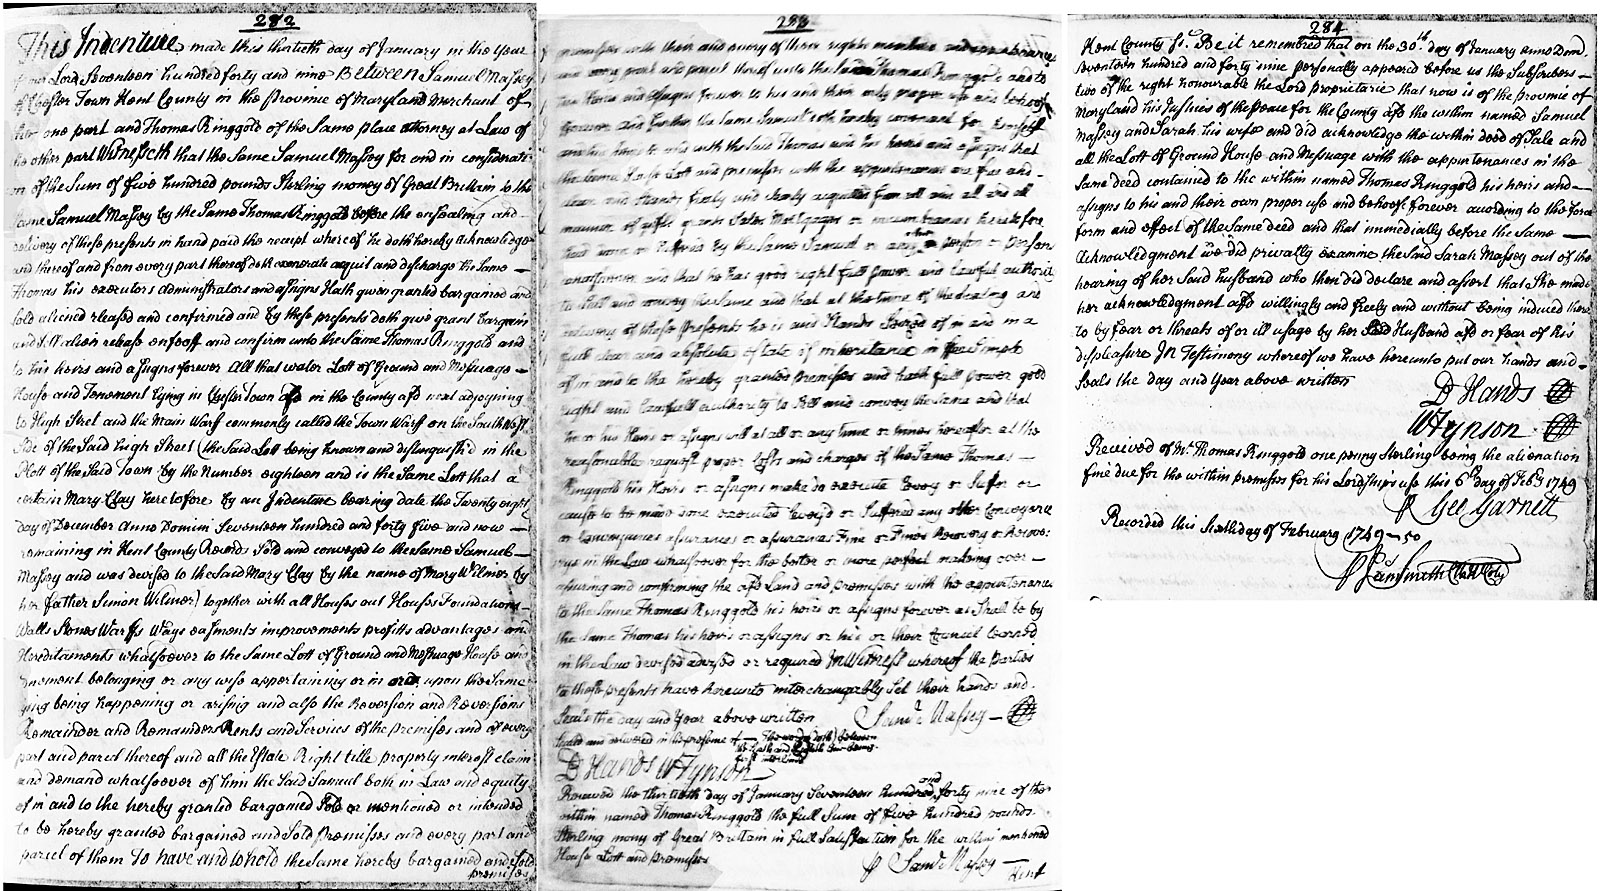 282
This Indenture made this thirtieth day of January in the Year
of our Lord Seventeen hundred forty and nine Between Samuel Massey
of Chester Town Kent County in the Province of Maryland Merchant of
the one part and Thomas Ringgold of the Same place attorney at Law of
the other part Witnesseth that the Same Samuel Massey for and in considerati
on of the Sum of five hundred pounds Sterling money of Great Brittain to the
Same Samuel Massey by the Same Thomas Ringgold before the ensealing and
delivery of these presents in hand paid the receipt whereof he doth hereby acknowledge
and thereof and from every part thereof doth exonerate acquit and discharge the Same
Thomas his executors administrators and assigns Hath given granted bargained and
Sold aliened released and confirmed and by these presents doth give grant bargain
and Sell alien release enfeoff and confirm unto the Same Thomas Ringgold and
to his heirs and assigns forever All that water Lott of Ground and Messuage
House and Tenement lying in Chester Town afd in the County afd next adjoyning
to High Street and the Main Warf commonly called the Town Warf on the South West
Side of the Said high Street (the Said Lott being known and distinguish'd in the
Plott of the Said Town by the Number eighteen and is the Same Lott that a
certain Mary Clay heretofore by an Indenture bearing date the Twenty eight
day of December Anno Domini Seventeen hundred and forty five and now
remaining in Kent County Records Sold and conveyed to the Same Samuel
Massey and was devised to the Said Mary Clay by the name of Mary Wilmer by
her father Simon Wilmer) together with all Houses out Houses Foundations
Walls Stones Warffs Ways easments improvements profitts advantages and
Hereditaments whatsoever to the Same Lott of Ground and Messuage House and
Tenement belonging or any wise appertaining or in upon the Same
lying being happening or arising and also the Reversion and Reversions
Remainder and Remainders Rents and Services of the Premises and of every
part and parcel thereof and all the Estate Right title property interest claim
and demand whatsoever of him the Said Samuel both in Law and equity
of in and to the hereby granted bargained Sold or mentioned or intended
to be hereby granted bargained and Sold Premisses and every part and
parcel of them To have and to hold the Same hereby bargained and Sold
premises
283
premises with their and every of their rights members and
and every part and parcel thereof unto the Said Thomas Ringgold and to
his Heirs and Assigns forever to his and their only proper use and behoof
forever and further the Same Samuel doth hereby covenant for himself
and his heirs to and with the Said Thomas and his heirs and assigns that
the Same Lott and premises with the appurtenances are free and
clear and Stands freely and clearly acquitted from all and all and all
manner of gifts grants Sales Mortgages or incumbrances heretofore
had done or Suffered by the Same Samuel or any other person or persons
whatsoever and that he has good right full power and lawful authority
to Sell and convey the Same and that at the time of the Sealing and
delivery of these Presents he is and Stands Seized of in and in a
full clear and absolute estate of inheritance in fee Simple
of in and to the hereby granted Premises and hath full power good
right and Lawfull authority to Sell and convey the Same and that
he or his Heirs or assigns will at all or any time or times hereafter at the
reasonable request proper costs and charges of the Same Thomas
Ringgold his Heirs or assigns make do execute levy or Suffer or
cause to be made done executed levyed or Suffered any other Conveyance
or Conveyances assurances or assurances Fine or Fines Recovery or Recove
rys in the Law whatsoever for the better or more perfect making over
assuring and confirming the afd Land and premisses with the appurtenances
to the Same Thomas Ringgold his heirs or assigns forever as Shall be by
the Same Thomas his heirs or assigns or his or their Council learned
in the Law devised advised or required In Witness whereof the Parties
to these presents have hereunto interchangably Set their hands and
Seals the day and Year above written Saml Massey
Seald and delivered in the presence of
D Hands W Tynson
Received the thirtieth day of January Seventeen hundred and forty nine of the
within named Thomas Ringgold the full Sum of five hundred pounds
Sterling mony of Great Brittain in full Satisfaction for the within mentioned
House Lott and premisses
Saml Massey
Kent
284
Kent County Sc. Be it remembred that on the 30th day of January anno Dom
Seventeen hundred and forty nine personally appeared before us the Subscribers
two of the right honourable the Lord proprietarie that now is of the province of
Maryland his Justices of the peace for the County afd the within named Samuel
Massey and Sarah his wife and did acknowledge the within deed of Sale and
all the Lott of Ground House and Messuage with the appurtenances in the
Same deed contained to the within named Thomas Ringgold his heirs and
assigns to his and their own proper use and behoof forever according to the force
form and effect of the Same deed and that immedially before the Same
Acknowledgment we did privatly examine the Said Sarah Massey out of the
hearing of her Said husband who then did declare and assert that She made
her acknowledgment afd willingly and freely and without being induced there
to by fear or threats of or ill usage by her Said Husband afd or fear of his
displeasure In Testimony whereof we have hereunto put our hands and
Seals the day and Year above written
D Hands
W Tynson
Received of Mr Thomas Ringgold one penny Sterling being the alienation
fine due for the within premisses for his Lordships use this 6th day of Febry 1749
Geo Garnett
Recorded this Sixth day of February 1749-50